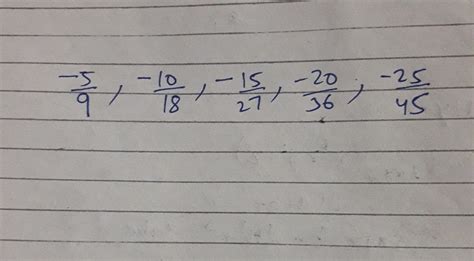 -5/9, -10/18, -15/27, -20/36, -25/45